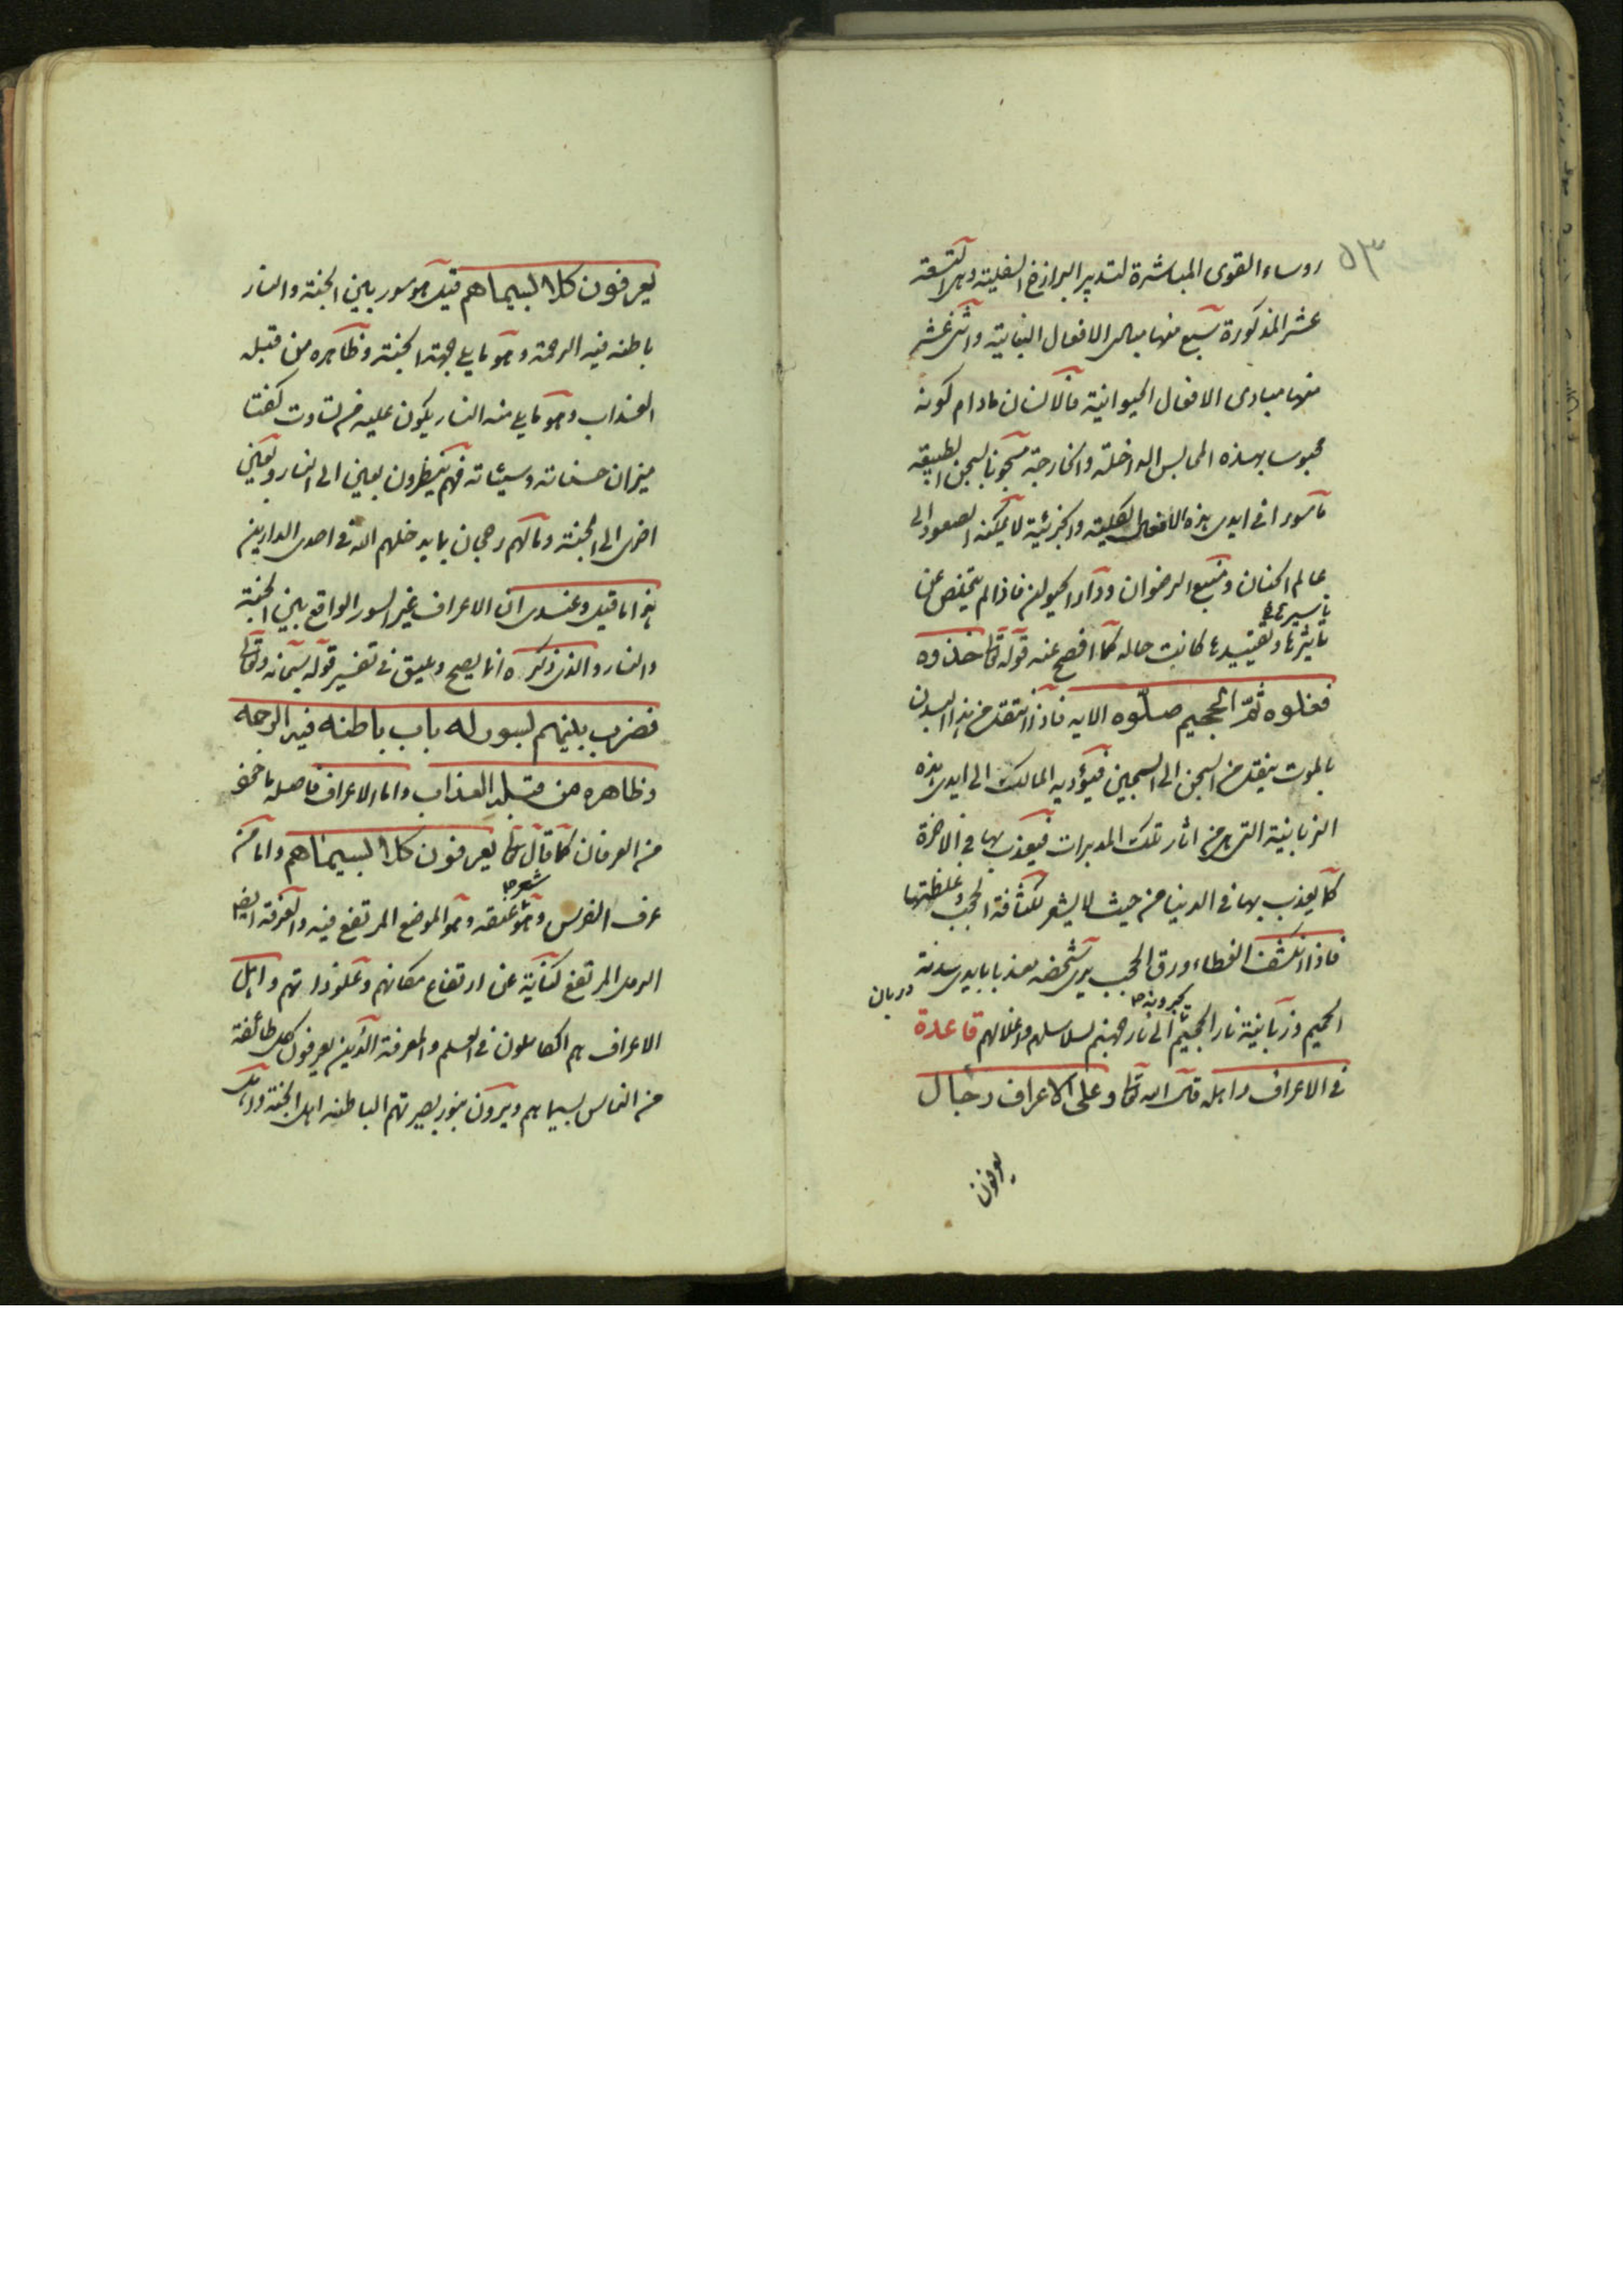 ٥٣
روساء القوى المباشرة لتدبير البرازخ السفلية وهى التسعة
عشر المذكورة سبع منها مبادى الافعال النباتية واثنى عشر
منها مبادى الافعال الحيوانية فالانسان مادام كونه
محبوسا بهذه المحابس الداخلة والخارجة مسجونا بسجن الطبيعة
ماسورا فى ايدى هذه الافعال الكلية والجزئية لا يمكنه الصعود الى
عالم الجنان ومنبع الرضوان ودار الحيوان فاذا لم يتخلص عن
تاسيرها
تاثيرها وتقييدها كانت حاله كما افصح عنه قوله تعالى خذوه
فغلوه ثم الجحيم صلوه الايه فاذا انتقل من هذا البدن
بالموت ينتقل من السجن الى السجين فيؤديه المالك الى ايدى هذه
الزبانية التى هى من اثار تلك المدبرات فيعذب بها فى الاخرة
كما يعذب بها فى الدنيا من حيث لا يشعر لكثافة الحجب وغلظتها
فاذا انكشف الغطاء ورق الحجب يرى شخصه معذبا بايدى سدنة
دربان
يجرونه
الجحيم وزبانية نار الجحيم الى نار جهنم بسلاسلهم واغلالهم قاعدة
فى الاعراف واهله قال الله تعالى وعلى الاعراف رجال
يعرفون
يعرفون كلا بسيماهم قيل هو سور بين الجنة والنار
باطنه فيه الرحمة وهو ما يلى جهة الجنة وظاهره من قبله
العذاب وهو ما يلى منه النار يكون عليه من تساوت كفتا
ميزان حسناته وسيئاته فهم ينظرون بعين الى النار وبعين
اخرى الى الجنة وما لهم رجحان بما يدخلهم الله فى احدى الدارين
هذا ما قيل وعندى ان الاعراف غير السور الواقع بين الجنة
والنار والذى ذكره انما يصح ويليق فى تفسير قوله سبحانه وتعالى
فضرب بينهم بسور له باب باطنه فيه الرحمة
وظاهره من قبله العذاب واما الاعراف فاصله ماخوذ
من العرفان كما قال تعالى يعرفون كلا بسيماهم واما من
شعر
عرف الفرس وهو عنقه وهو الموضع المرتفع فيه والعرفة ايضا
الرمل المرتفع كناية عن ارتفاع مكانهم وعلو ذاتهم واهل
الاعراف هم الكاملون فى العلم والمعرفة الذين يعرفون كل طائفة
من الناس بسيماهم ويرون بنور بصيرتهم الباطنه اهل الجنة واهل